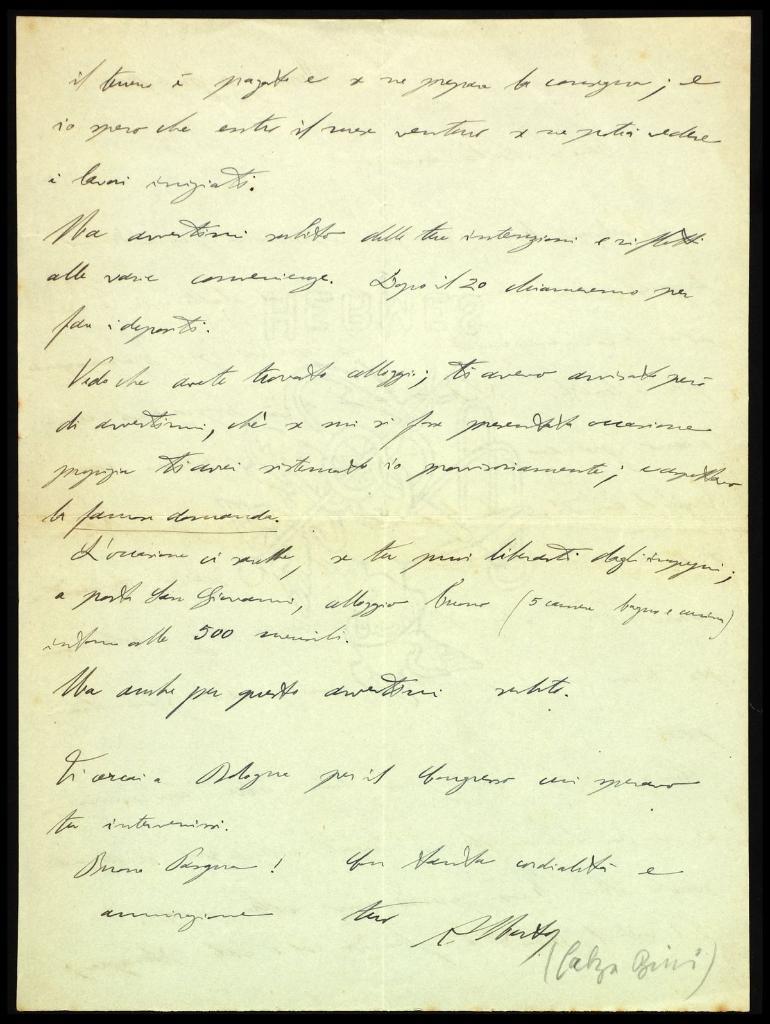 il terreno è pagato e se ne prepara la consegna; e
io spero che entro il mese venturo se ne potrà vedere
i lavori iniziati.
Ma avvertimi subito delle tue intenzioni e rifletti
alle varie convenienze. Dopo il 20 chiameremo per
fare i depositi.
Vedo che avete trovato alloggio; ti avevo avvisato però
di avvertirmi, chè se mi si fosse presentata occasione
propizia ti avrei sistemato io provvisoriamente; e aspettavo
la famosa domanda.
L'occasione ci sarebbe, se tu puoi liberarti dagli impegni;
a porta San Giovanni, alloggio buono (5 camere bagno e cucina)
intorno alle 500 mensili.
Ma anche per questo avvertimi subito.
Ti cercai a Bologna per il Congresso cui speravo
tu intervenissi.
Buona Pasqua! Con tanta cordialità e
ammirazione tuo Alberto
(Calza Bini)